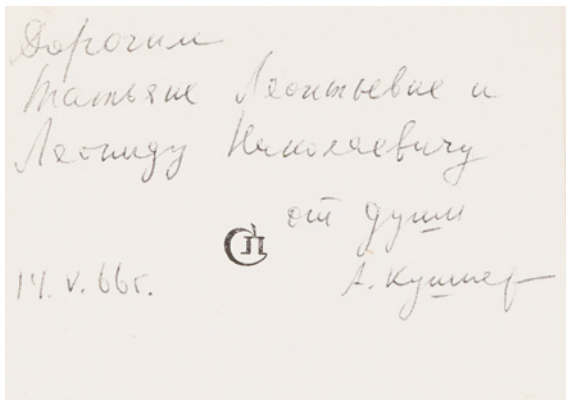 Дорогим
Татьяне Леонтьевне и
Леониду Николаевичу
от души
СП
14. V. 66г.
А. Кушнер